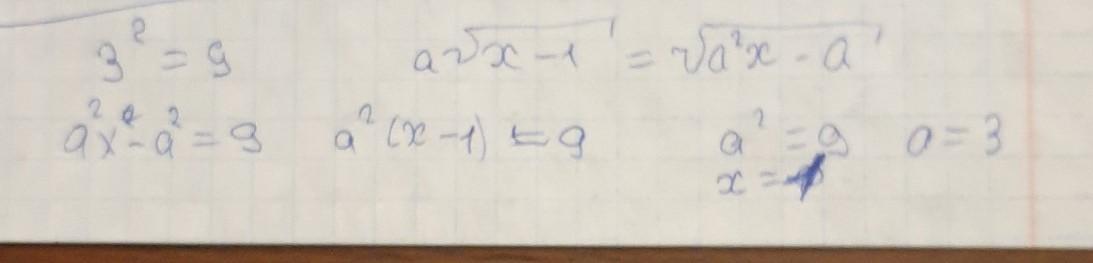 3² = 9 a√x - 1 = √a²x - a
a²x - a² = 9 a²(x - 1) = 9 a² = 9 a = 3
x =